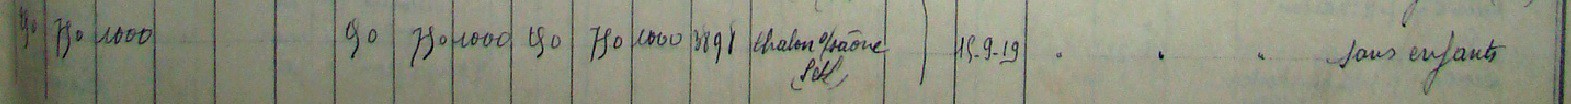 50 750 1000 50 750 1000 50 750 1000 3898 Chalon s/Saône 15-9-19 " " " sans enfants
(S&L)